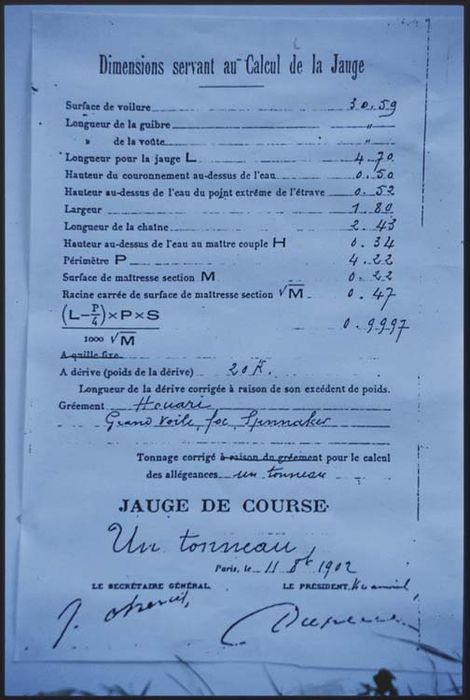 Dimensions servant au Calcul de la Jauge
Surface de voilure 30.59
Longueur de la guibre "
» de la voûte "
Longueur pour la jauge L 4.70
Hauteur du couronnement au-dessus de l'eau 0.50
Hauteur au-dessus de l'eau du point extrême de l'étrave 0.52
Largeur 1.80
Longueur de la chaîne 2.43
Hauteur au-dessus de l'eau au maître couple H 0.34
Périmètre P 4.22
Surface de maîtresse section M 0.22
Racine carrée de surface de maîtresse section √M 0.47
(L-P/4)×P×S
1000 √M 0.9997
A quille fixe
A dérive (poids de la dérive) 20 K.
Longueur de la dérive corrigée à raison de son excédent de poids.
Gréement Houari
Grand voile, foc, Spinnaker
Tonnage corrigé à raison du gréement pour le calcul
des allégeances un tonneau
JAUGE DE COURSE
Un tonneau
Paris, le 11 8bre 1902
LE SECRÉTAIRE GÉNÉRAL LE PRÉSIDENT